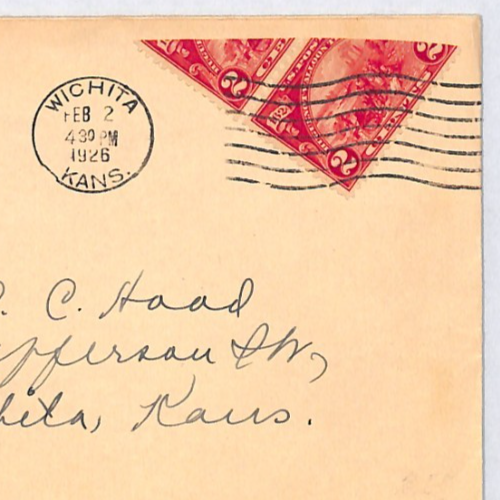 WICHITA
FEB 2
4 30 PM
1926
KANS.
2 2
2
C. Hood
efferson
hita, Kans.